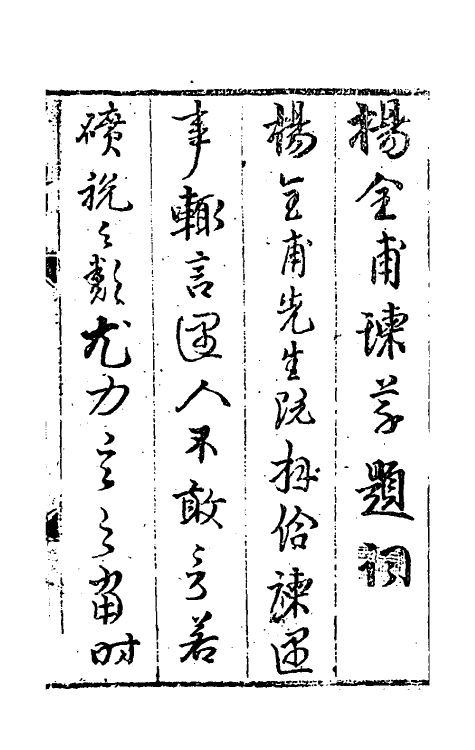 楊全甫諫草題詞
楊全甫先生既拜給諫遇
事輒言逞人不敢言若
礦稅之類尤力言之當時